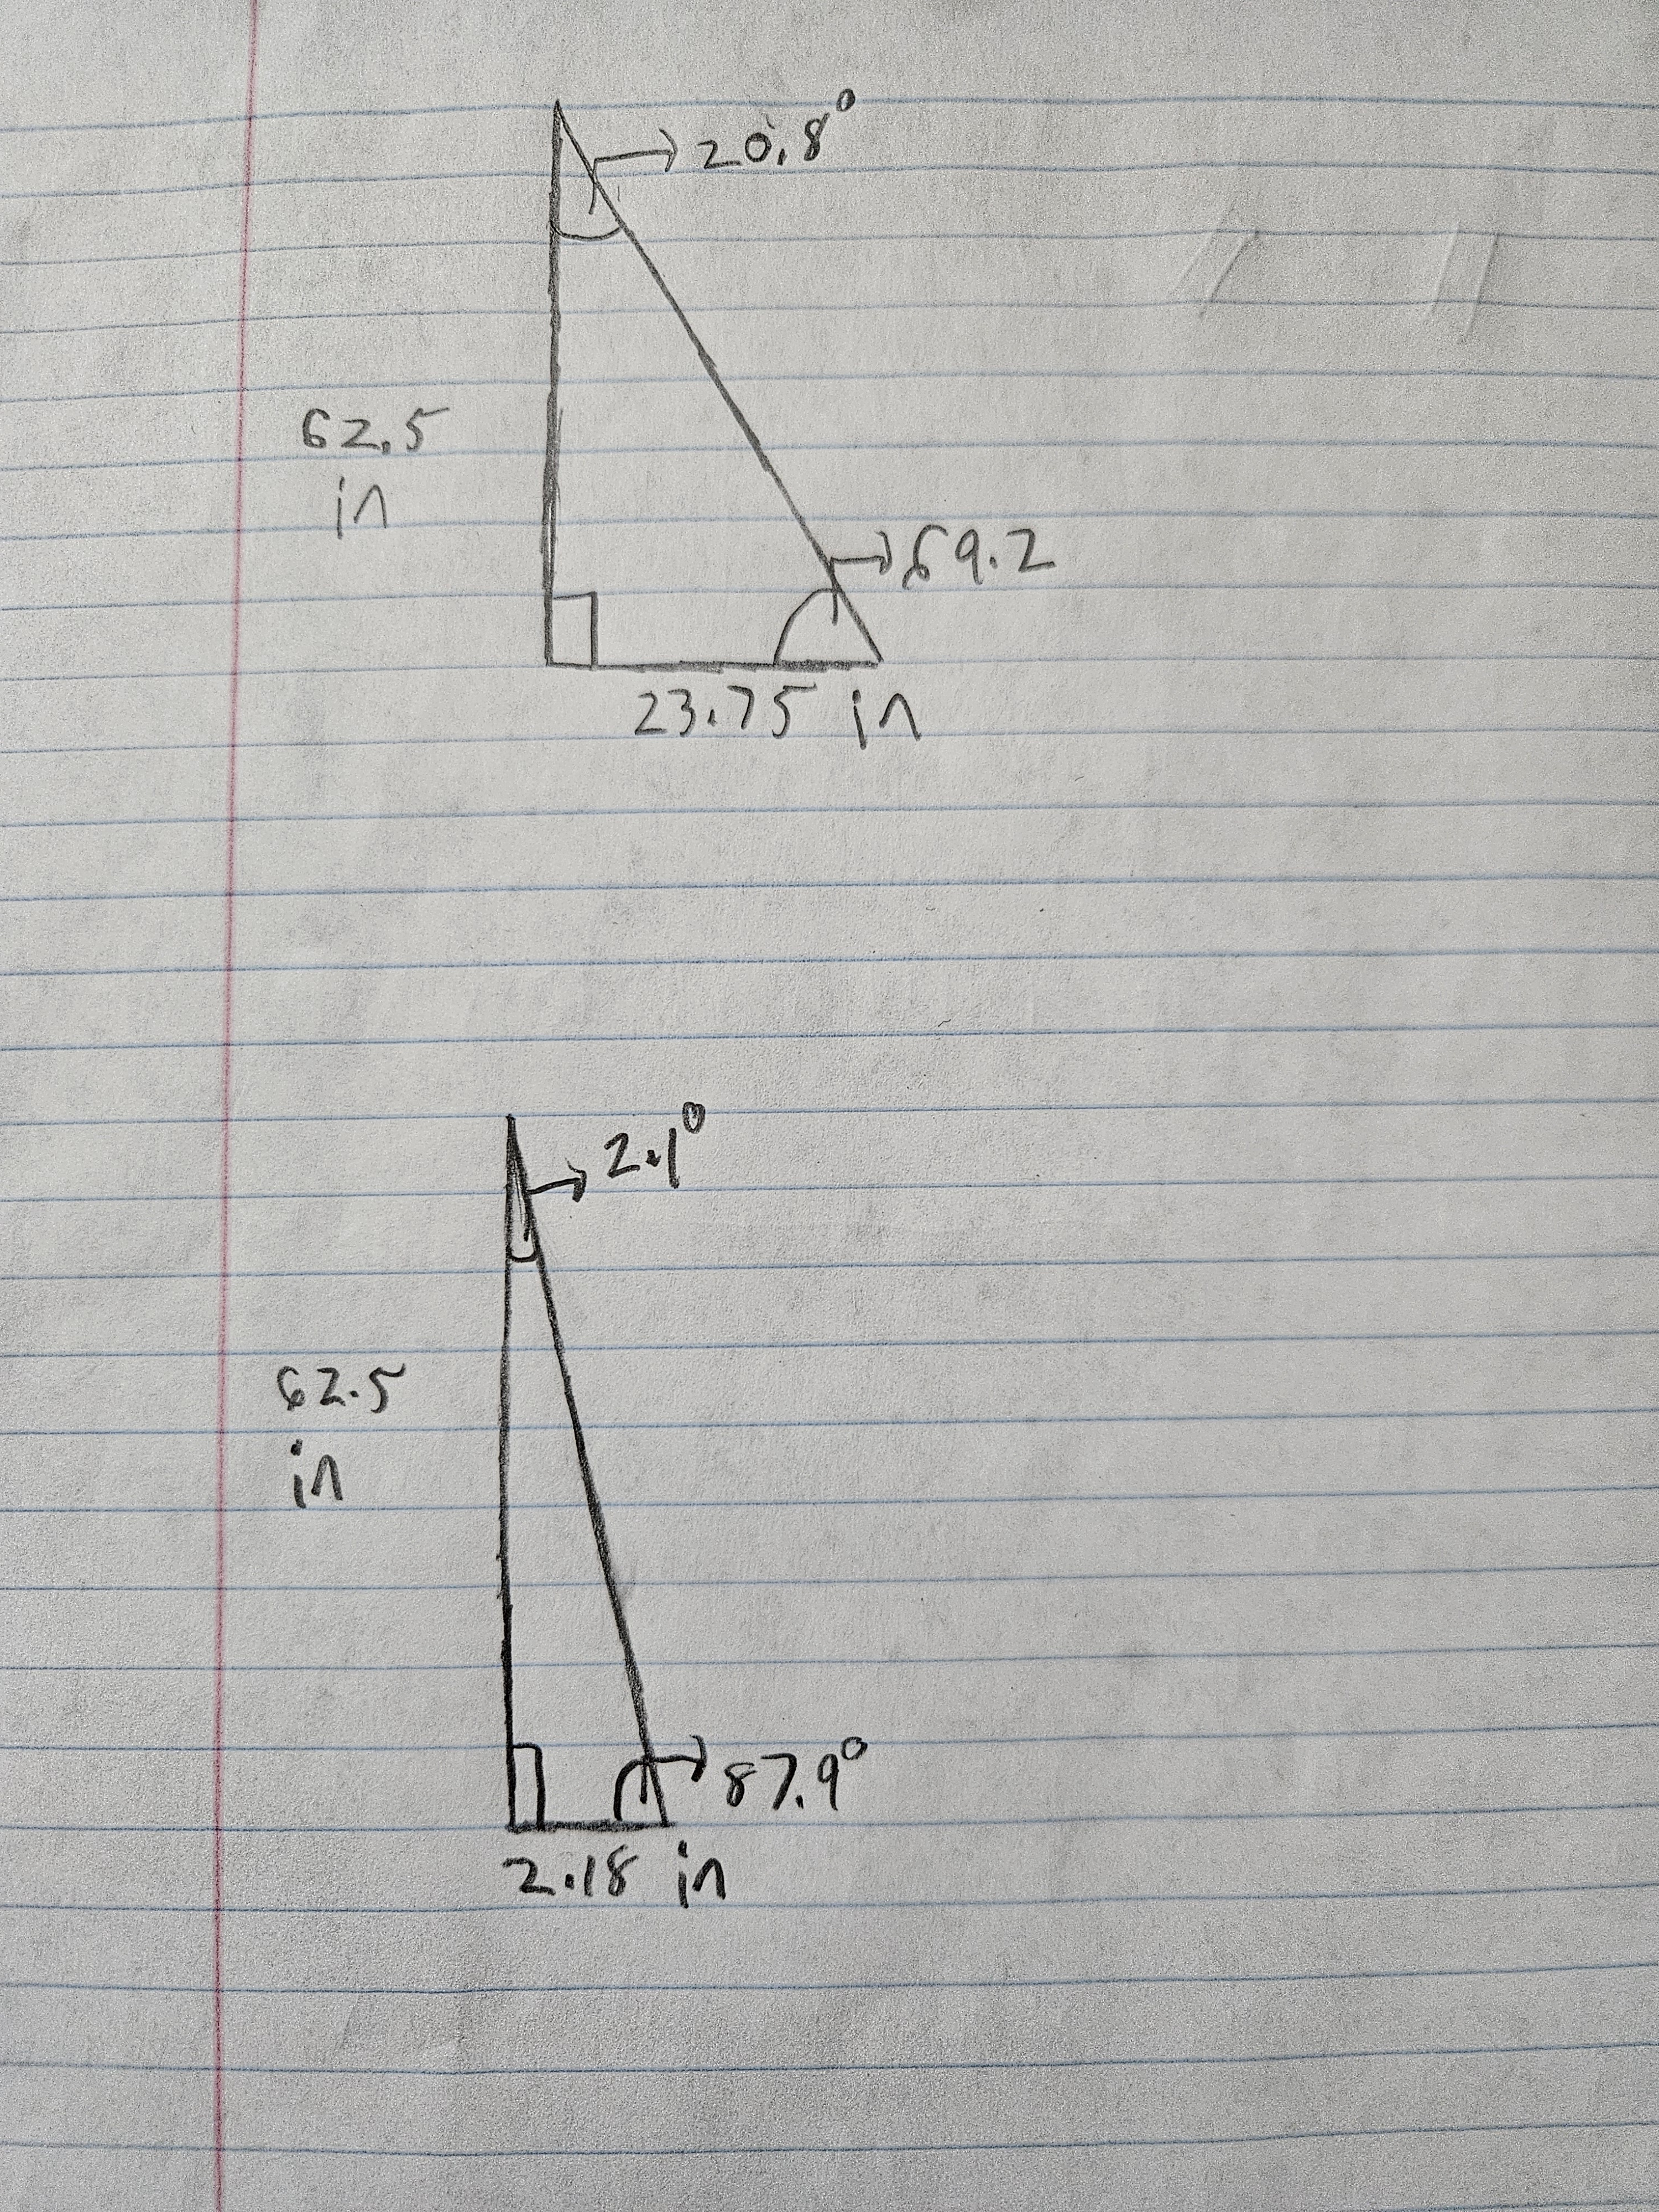 20.8°
62.5
in
69.2
23.75 in
2.1°
62.5
in
87.9°
2.18 in